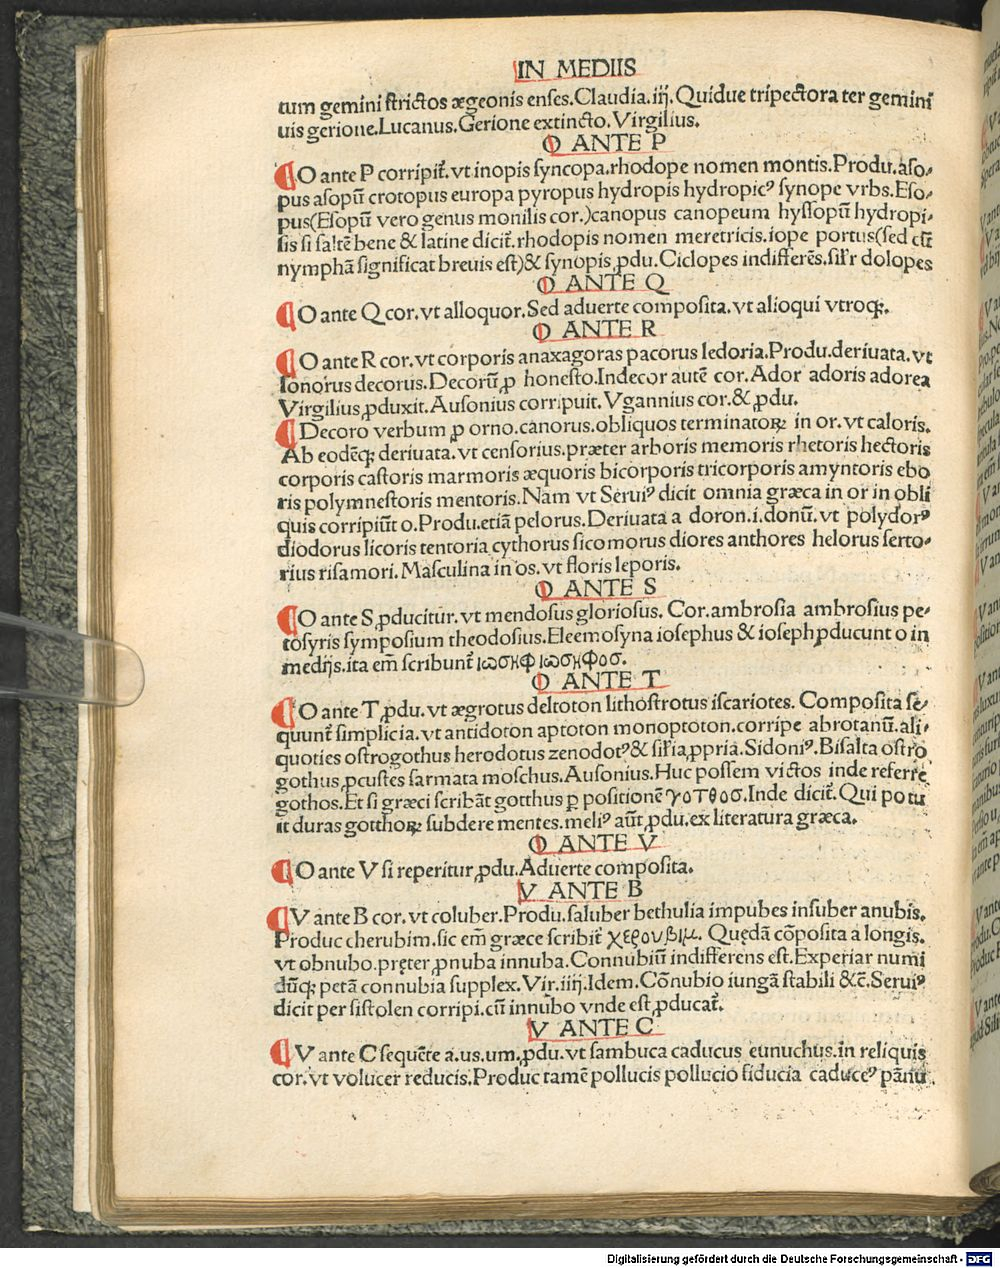 IN MEDIIS
tum gemini strictos ægeonis enses.Claudia.iiij.Quidue tripectora ter gemini
uis gerione.Lucanus.Gerione extincto.Virgilius.
O ANTE P
¶O ante P corripit᷑.vt inopis syncopa.rhodope nomen montis.Produ.aso-
pus asopū crotopus europa pyropus hydropis hydropicꝰ synope vrbs.Eso-
pus(Esopū vero genus monilis cor.)canopus canopeum hyssopū hydropi-
sis si saltē bene & latine dicit᷑.rhodopis nomen meretricis.iope portus(sed cū
nymphā significat breuis est)& synopis ꝓdu.Ciclopes indifferēs.sil'r dolopes
O ANTE Q
¶O ante Q cor.vt alloquor.Sed aduerte composita.vt alioqui vtroqꝫ.
O ANTE R
¶O ante R cor.vt corporis anaxagoras pacorus ledoria.Produ.deriuata.vt
sonorus decorus.Decorū ꝓ honesto.Indecor autē cor.Ador adoris adorea
Virgilius ꝓduxit.Ausonius corripuit.Vgannius cor.& ꝓdu.
¶Decoro verbum ꝓ orno.canorus.obliquos terminatoꝝ in or.vt caloris.
Ab eodēqꝫ deriuata.vt censorius.præter arboris memoris rhetoris hectoris
corporis castoris marmoris æquoris bicorporis tricorporis amyntoris ebo
ris polymnestoris mentoris.Nam vt Seruiꝰ dicit omnia græca in or in obli
quis corripiūt o.Produ.etiā pelorus.Deriuata a doron.i.donū.vt polydorꝰ
diodorus licoris tentoria cythorus sicomorus diores anthores helorus serto-
rius risamori.Masculina in os.vt floris leporis.
O ANTE S
¶O ante S ꝓducitur.vt mendosus gloriosus. Cor.ambrosia ambrosius pe-
tosyris symposium theodosius.Eleemosyna iosephus & ioseph ꝓducunt o in
medijs.ita em̄ scribunt᷑ ιωσηφ ιωσηφοσ.
O ANTE T
¶O ante T ꝓdu.vt ægrotus deltoton lithostrotus iscariotes. Composita se-
quunt᷑ simplicia.vt antidoton aptoton monoptoton.corripe abrotanū.ali-
quoties ostrogothus herodotus zenodotꝰ& sil'ia ꝓpria.Sidoniꝰ.Bisalta ostro
gothus ꝓcustes sarmata moschus.Ausonius.Huc possem victos inde referre
gothos.Et si græci scribāt gotthus ꝑ positionē γοτθοσ.Inde dicit᷑.Qui potu
it duras gotthoꝝ subdere mentes.meliꝰ aūt ꝓdu.ex literatura græca.
O ANTE V
¶O ante V si reperitur ꝓdu.Aduerte composita.
V ANTE B
¶V ante B cor.vt coluber.Produ.saluber bethulia impubes insuber anubis.
Produc cherubim.sic em̄ græce scribit᷑ χερουβιμ. Quędā cōposita a longis.
vt obnubo.pręter ꝓnuba innuba.Connubiū indifferens est.Experiar numi
dūqꝫ petā connubia supplex.Vir.iiij.Idem.Cōnubio iungā stabili &c̄.Seruiꝰ
dicit per sistolen corripi.cū innubo vnde est ꝓducat᷑.
V ANTE C
¶V ante C sequēte a.us.um.ꝓdu.vt sambuca caducus eunuchus.in reliquis
cor.vt volucer reducis.Produc tamē pollucis pollucio fiducia caduceꝰ pānu
Digitalisierung gefördert durch die Deutsche Forschungsgemeinschaft - DFG